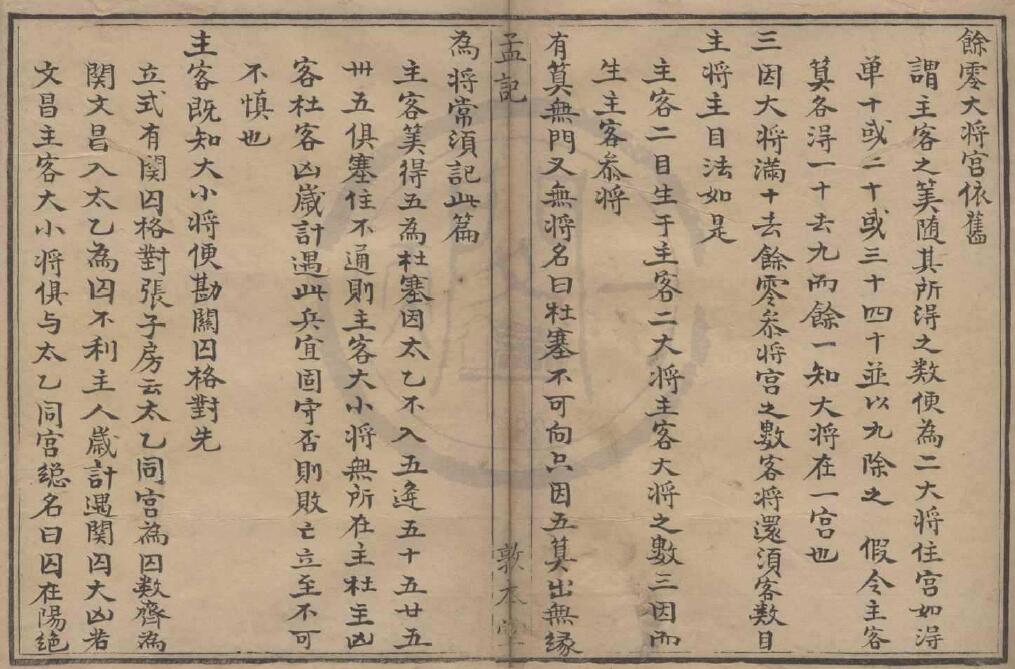 餘零大将宮依舊
謂主客之筭随其所得之数便為二大将住宮如得
单十或二十或三十四十並以九除之 假令主客
筭各得一十去九而餘一知大将在一宮也
三因大将满十去餘零叅将宮之數客将還須客数目
主将主目法如是
主客二目生于主客二大将主客大将之數三因而
生主客叅将
有筭無門又無将名曰杜塞不可向只因五筭出無緣
孟記
敦本堂
為将常須記此篇
主客筭得五為杜塞因太乙不入五逢五十五廿五
卅五俱塞住不通則主客大小将無所在主杜主凶
客杜客凶嵗計遇此兵宜固守否則敗亡立至不可
不慎也
主客既知大小将便勘關囚格對先
立式有関囚格對張子房云太乙同宮為囚数齊為
関文昌入太乙為囚不利主人嵗計遇関囚大凶若
文昌主客大小将俱与太乙同宮縂名曰囚在陽絶